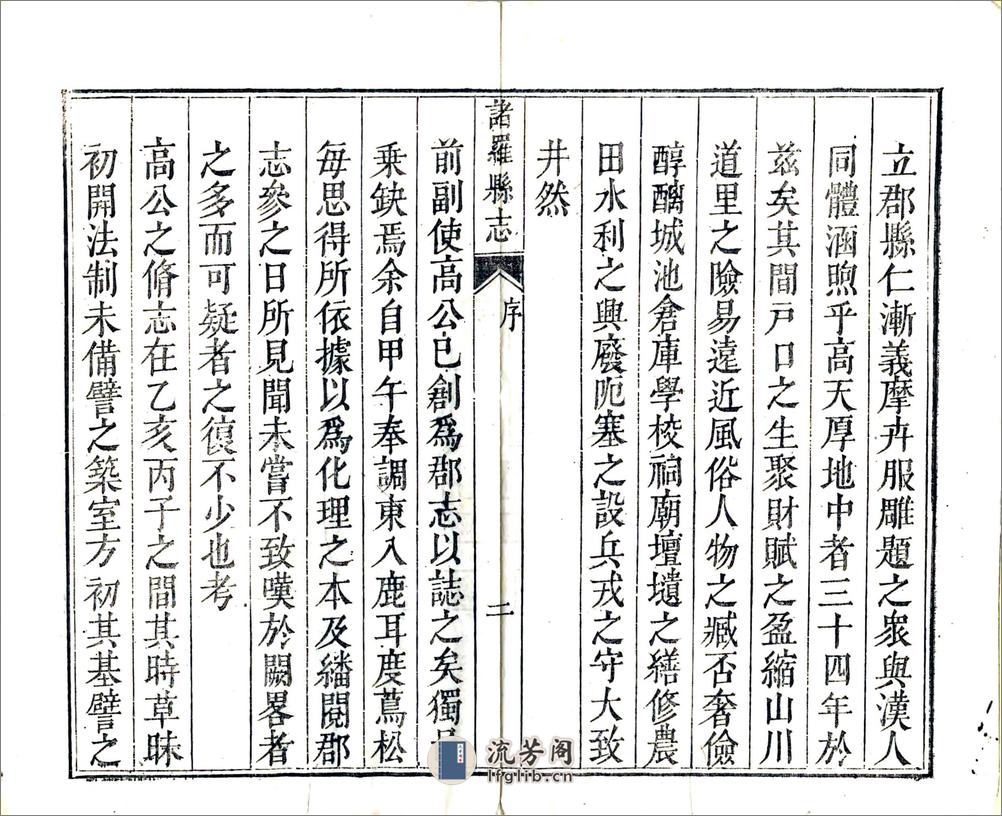 立郡縣仁漸義摩卉服雕題之衆與漢人
同體涵煦乎高天厚地中者三十四年於
茲矣其間戸口之生聚財賦之盈縮山川
道里之險易遠近風俗人物之臧否奢儉
醇醨城池倉庫學校祠廟壇壝之繕修農
田水利之興廢阨塞之設兵戎之守大致
井然
諸羅縣志
序
二
前副使高公已創爲郡志以誌之矣獨
乗缺焉余自甲午奉調東入鹿耳度蔦松
每思得所依據以爲化理之本及繙閱郡
志參之日所見聞未嘗不致嘆於闕畧者
之多而可疑者之復不少也考
高公之脩志在乙亥丙子之間其時草昧
初開法制未備譬之築室方初其基譬之
流芳阁
lfglib.cn